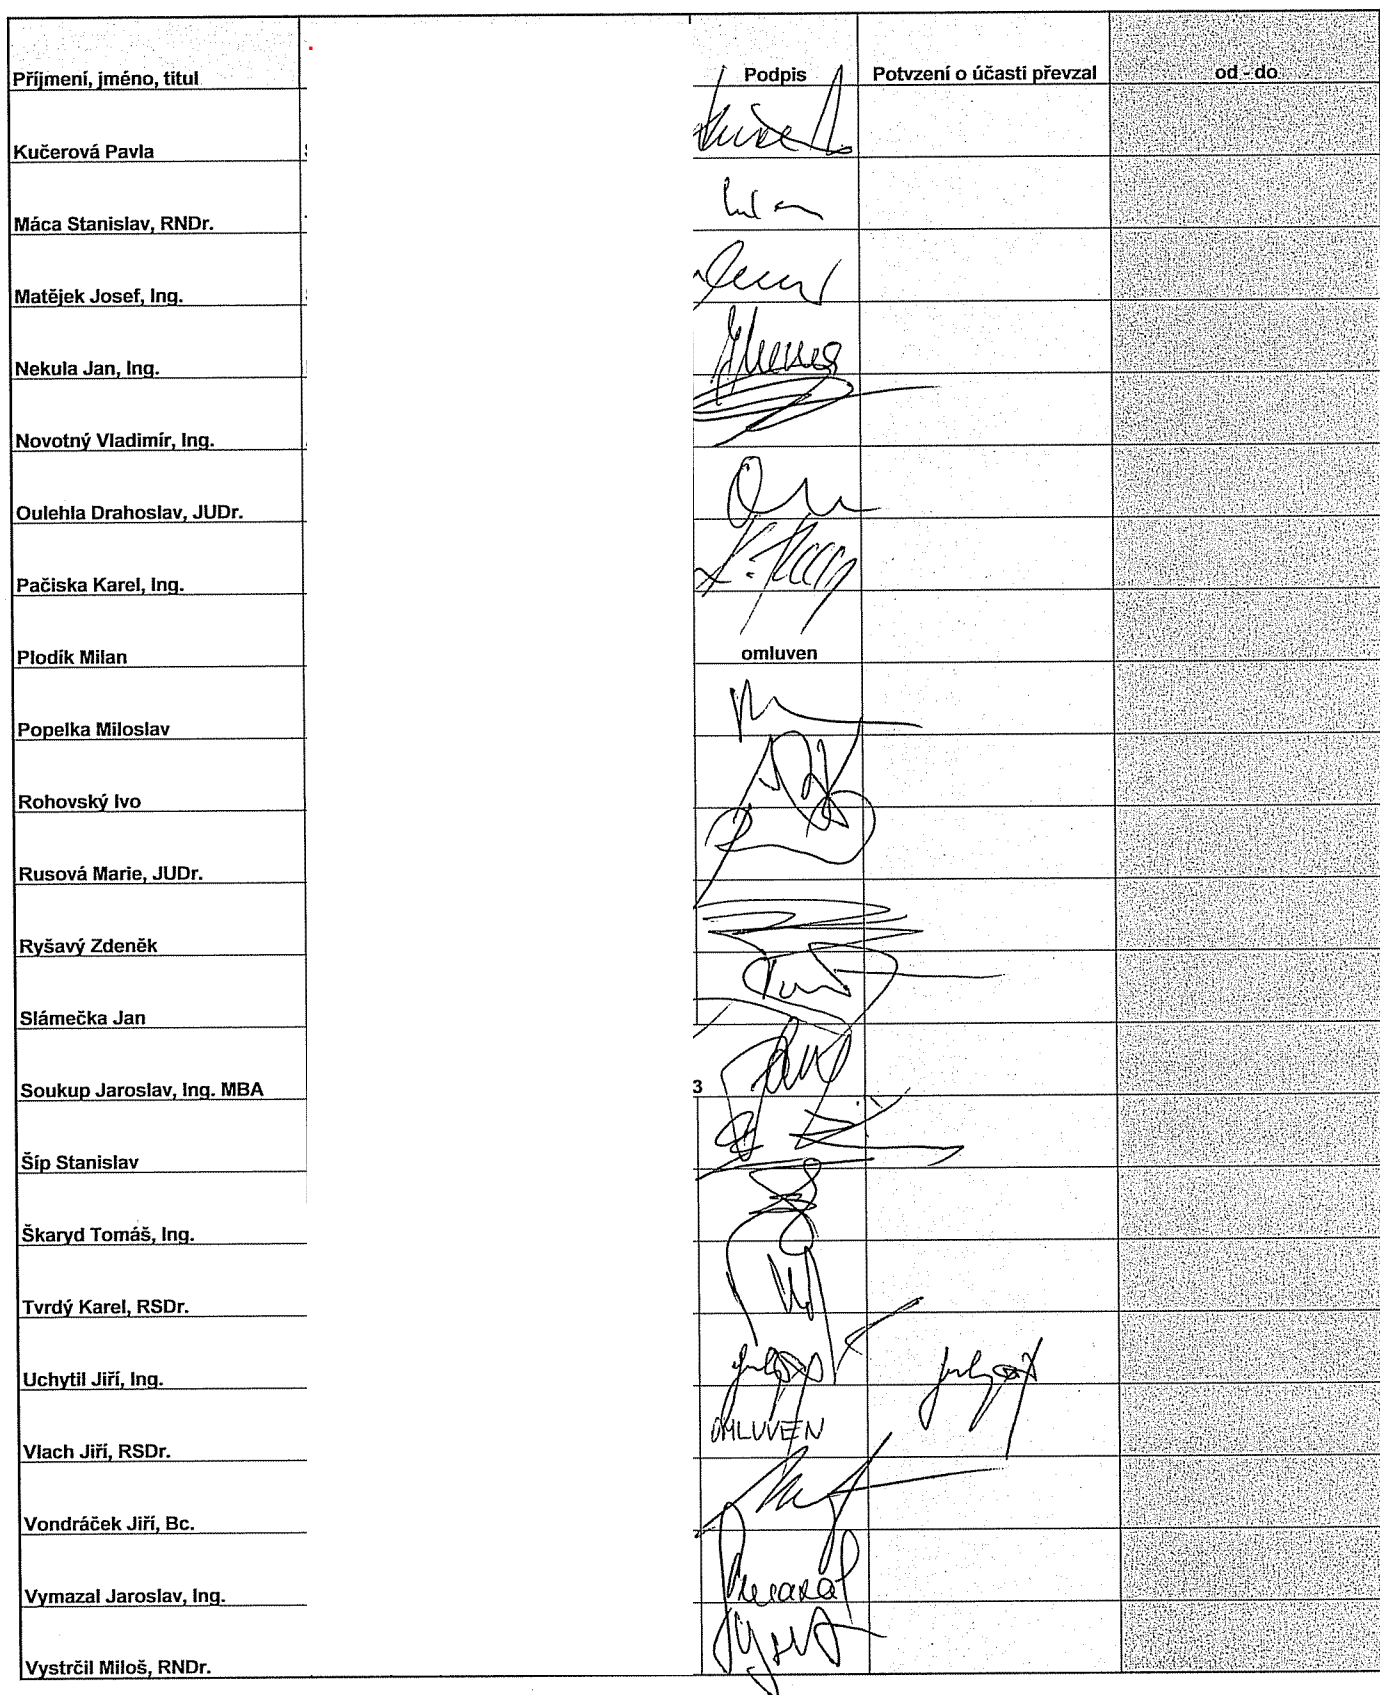 Příjmení, jméno, titul Podpis Potvzení o účasti převzal od - do
Kučerová Pavla
Máca Stanislav, RNDr.
Matějek Josef, Ing.
Nekula Jan, Ing.
Novotný Vladimír, Ing.
Oulehla Drahoslav, JUDr.
Pačiska Karel, Ing.
Plodík Milan omluven
Popelka Miloslav
Rohovský Ivo
Rusová Marie, JUDr.
Ryšavý Zdeněk
Slámečka Jan
Soukup Jaroslav, Ing. MBA 3
Šíp Stanislav
Škaryd Tomáš, Ing.
Tvrdý Karel, RSDr.
Uchytil Jiří, Ing.
Vlach Jiří, RSDr. OMLUVEN
Vondráček Jiří, Bc.
Vymazal Jaroslav, Ing.
Vystrčil Miloš, RNDr.